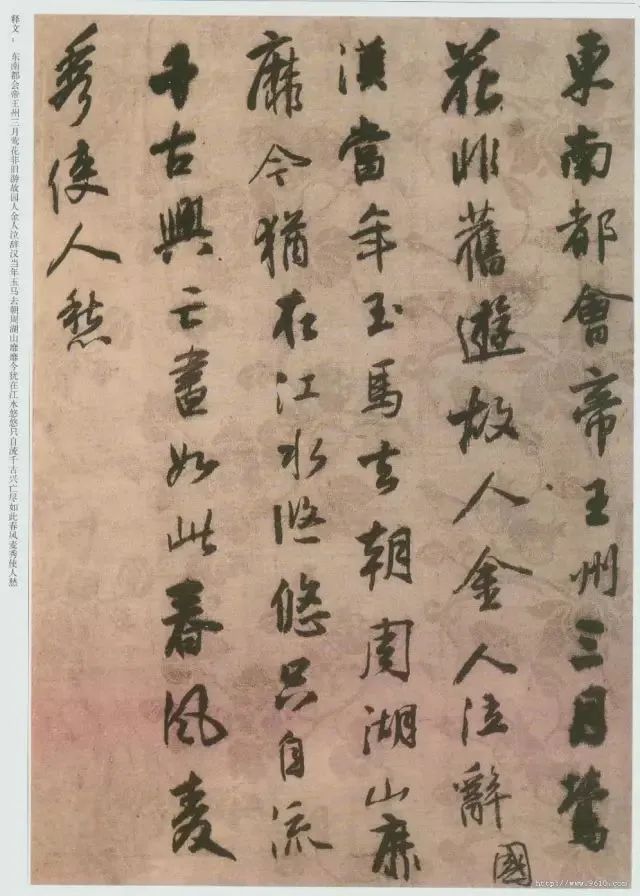 東南都會帝王州三月鶯
花非舊遊故人金人泣辭
國
漢當年玉馬去朝周湖山靡
靡今猶在江水悠悠只自流
千古興亡盡如此春風麥
秀使人愁
释文: 东南都会帝王州三月莺花非旧游故园人金人泣辞汉当年玉马去朝周湖山靡靡今犹在江水悠悠只自流千古兴亡尽如此春风麦秀使人愁
http://www.9610.com